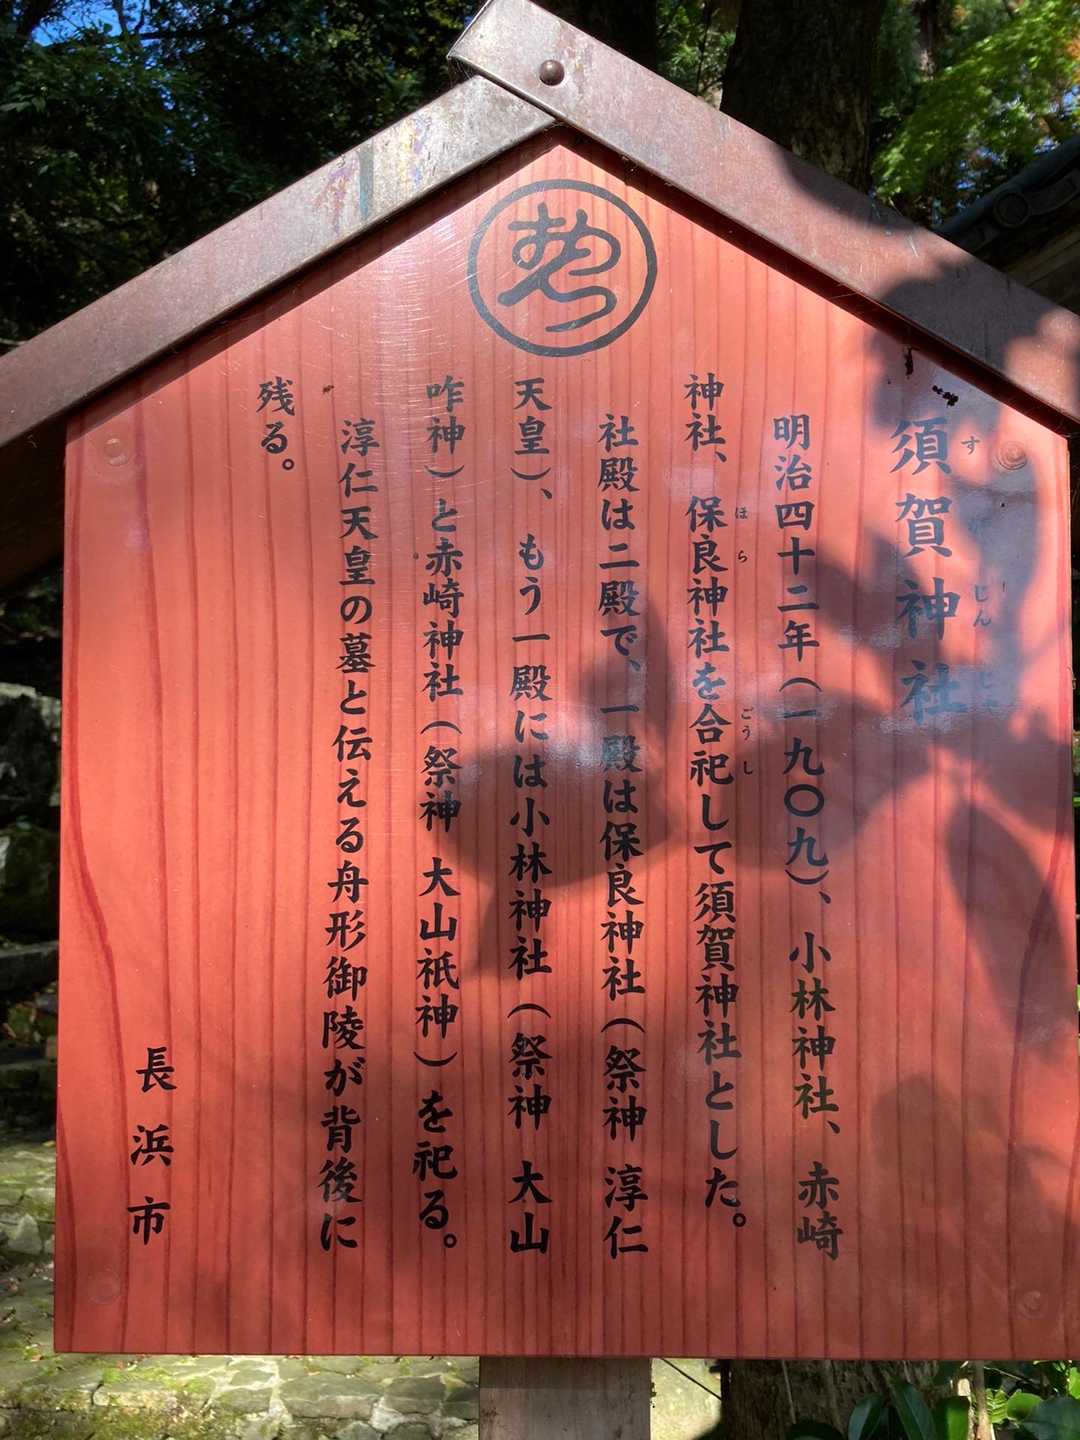 須賀神社
明治四十二年（一九〇九）、小林神社、赤崎
神社、保良神社を合祀して須賀神社とした。
社殿は二殿で、一殿は保良神社（祭神 淳仁
天皇）、もう一殿には小林神社（祭神 大山
咋神）と赤崎神社（祭神 大山祇神）を祀る。
淳仁天皇の墓と伝える舟形御陵が背後に
残る。
長浜市